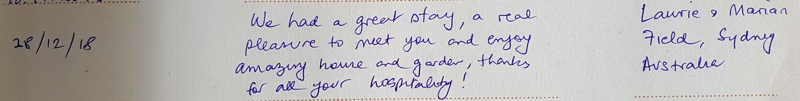 28/12/18
We had a great stay, a real
pleasure to meet you and enjoy
amazing house and garden, thanks
for all your hospitality!
Laurie & Marian
Field, Sydney
Australia